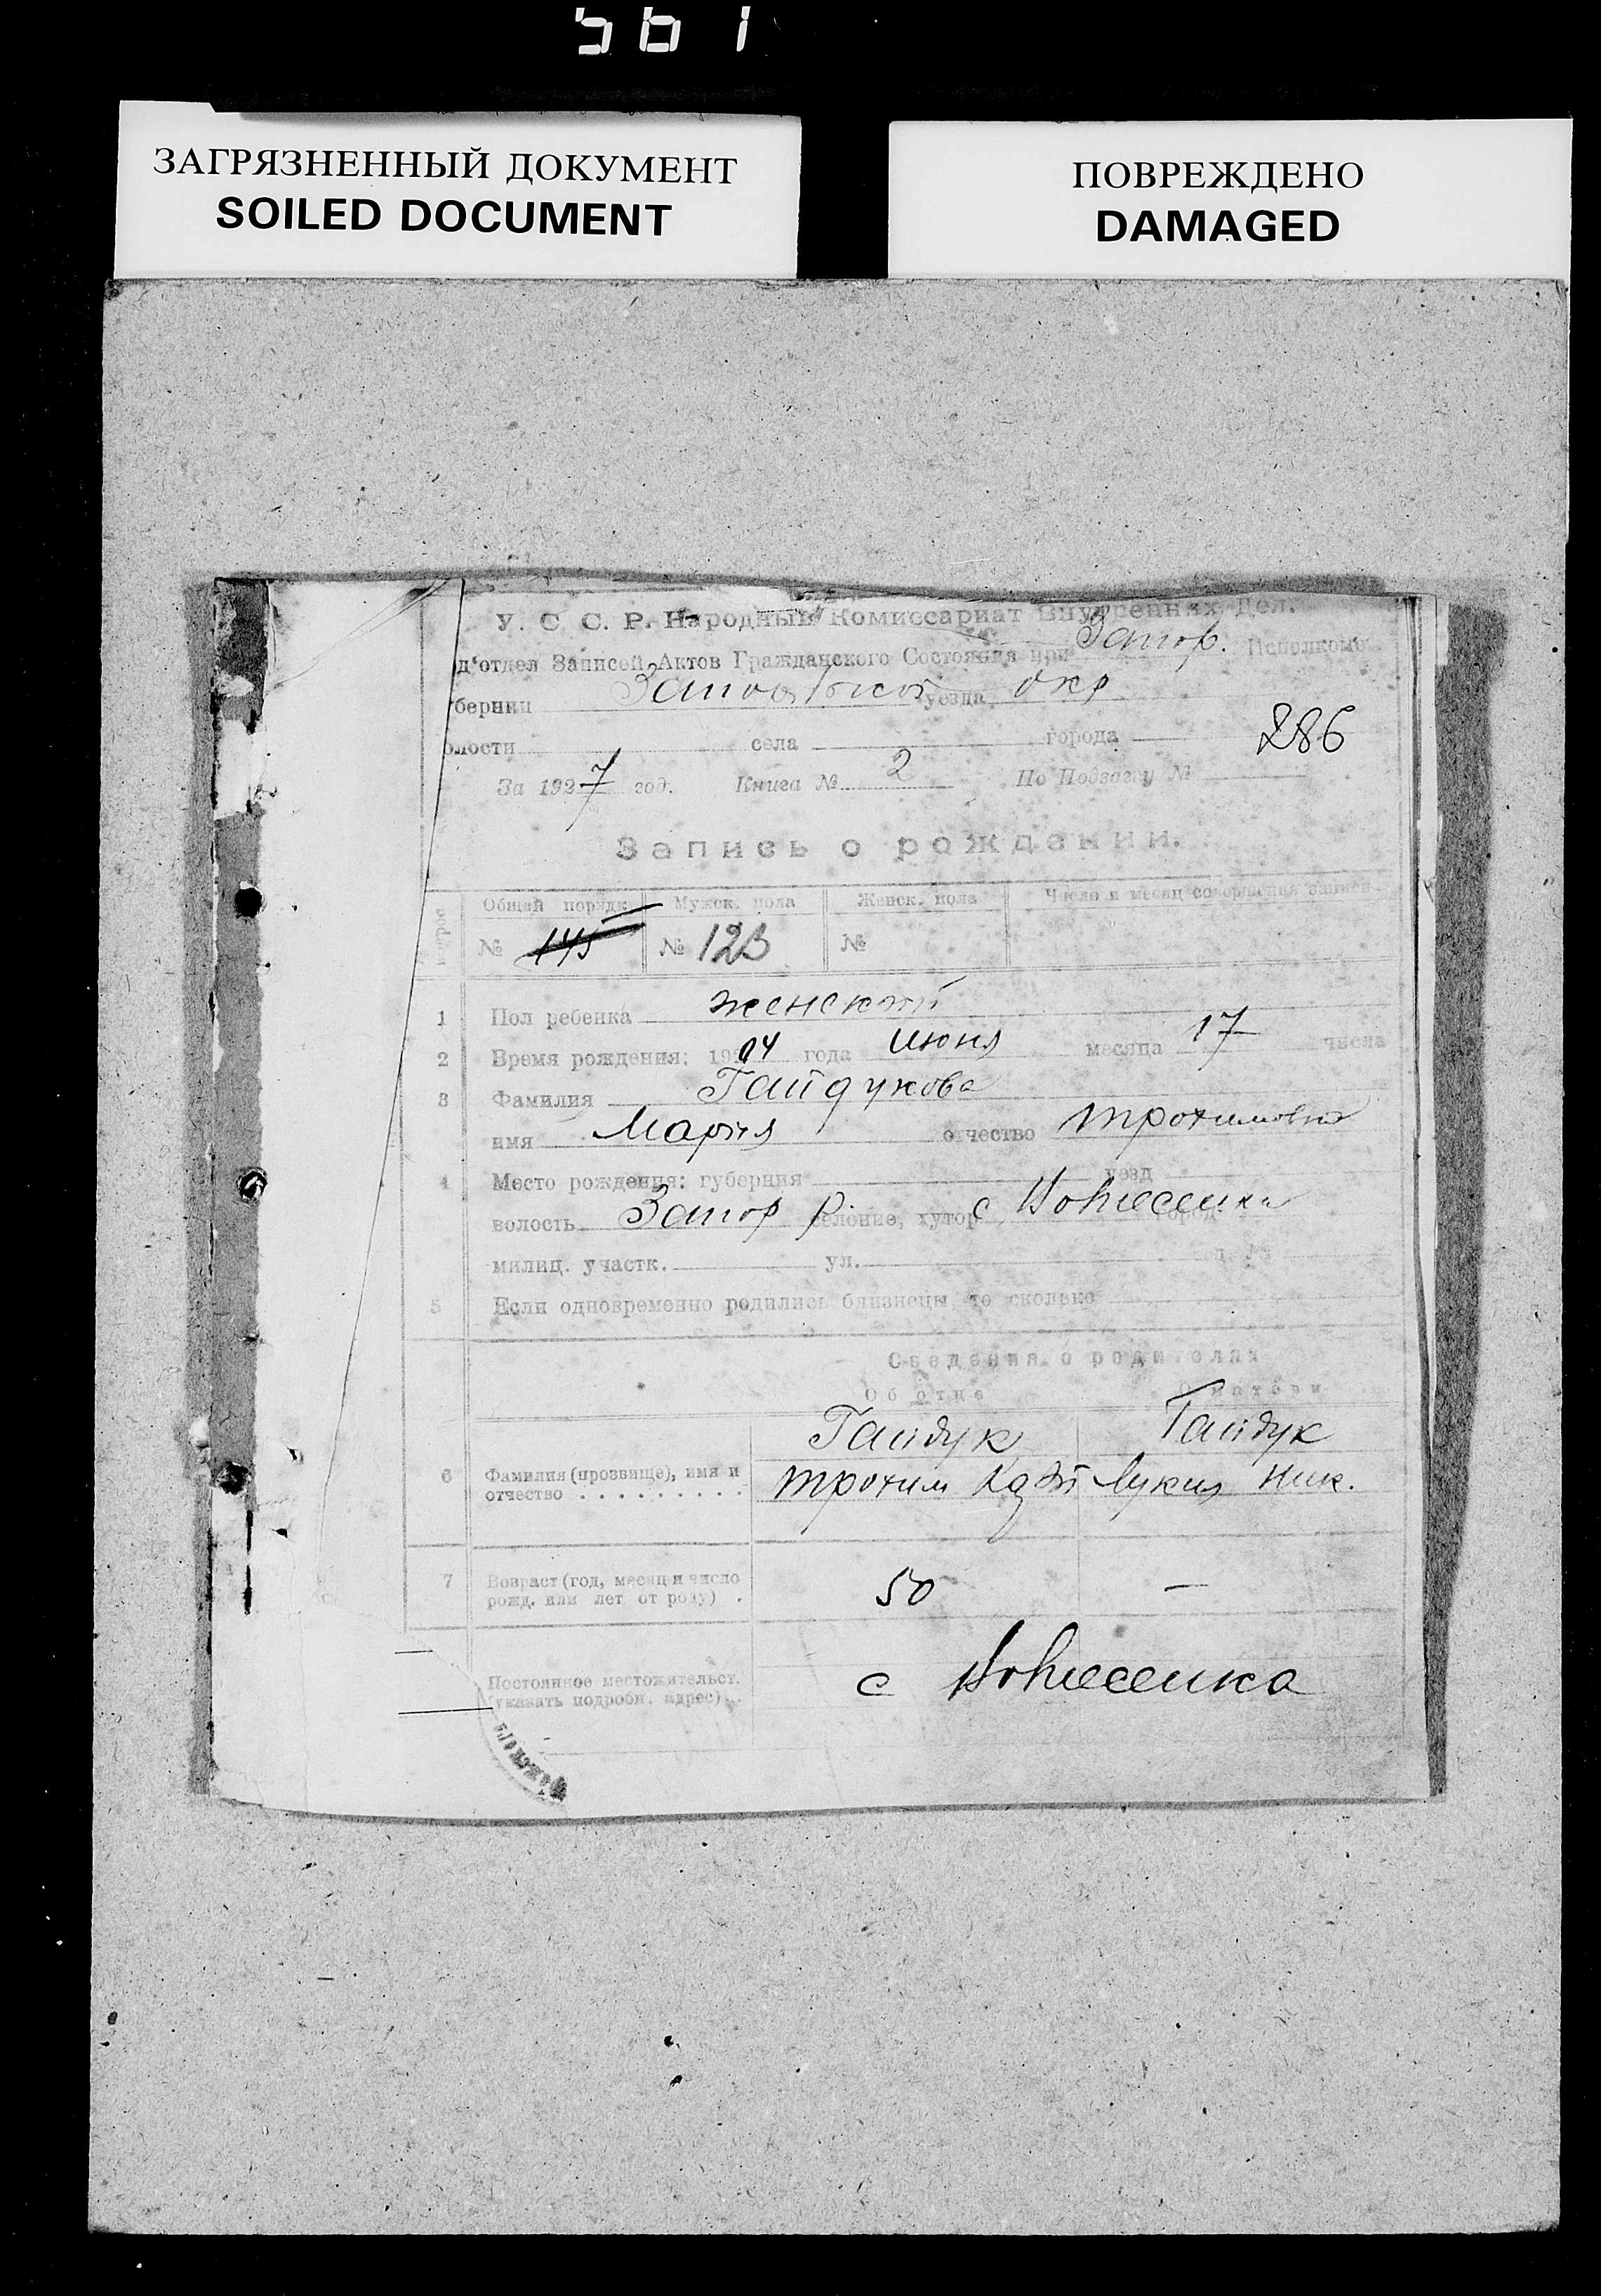 561
ЗАГРЯЗНЕННЫЙ ДОКУМЕНТ
SOILED DOCUMENT
ПОВРЕЖДЕНО
DAMAGED
У. С С. Р. Народный Комиссариат Внутренних Дел.
д'отдел Записей Актов Гражданского Состояния при Запор. Исполкоме
бернии уезда окр
олости села города 286
За 1927 год. Книга № 2 По Подзагсу №
Запись о рождении.
Общий порядк Мужск. пола Женск. пола Число и месяц совершения записи
№ 145 № 123 №
1 Пол ребенка женский
2 Время рождения: 1904 года июня месяца 17 числа
3 Фамилия Гайдукова
имя Мария отчество Трохимовна
4 Место рождения: губерния уезд
волость Запор р. селение, хутор с Вознесенка город
милиц. участк. ул. д. №
5 Если одновременно родились близнецы, то сколько
Сведения о родителях
Об отце О матери
Гайдук Гайдук
6 Фамилия (прозвище), имя и отчество . . . . . . . . . Трохим Лукия Ник.
7 Возраст (год, месяц и число рожд. или лет от роду) . 50 —
Постоянное местожительст. (указать подробн. адрес) . с Вознесенка